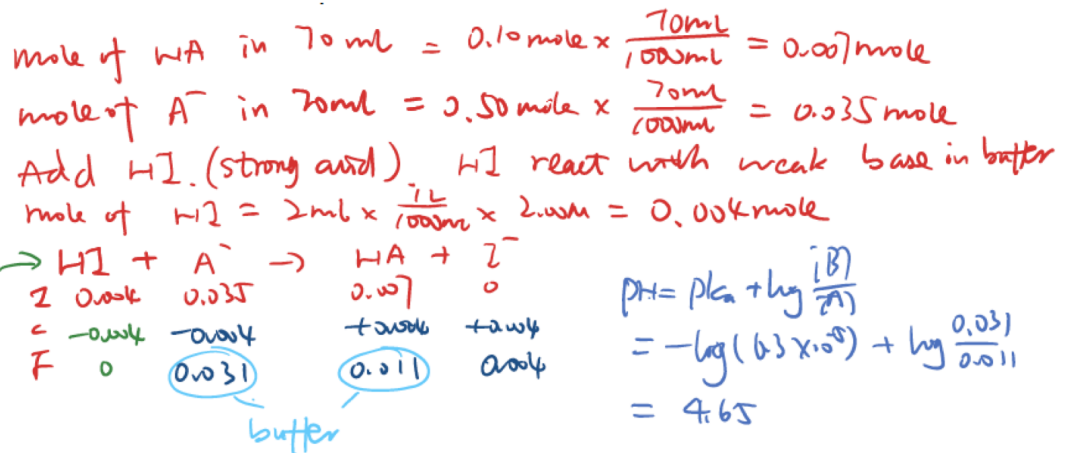 mole of HA in 70 ml = 0.10 mole x 70mL/1000mL = 0.007 mole
mole of A⁻ in 70ml = 0.50 mole x 70mL/1000mL = 0.035 mole
Add HI. (strong acid). HI react with weak base in buffer
mole of HI = 2ml x 1L/1000mL x 2.00M = 0.004 mole
→ HI + A⁻ → HA + I⁻
I 0.004 0.035 0.007 0
C -0.004 -0.004 +0.004 +0.004
F 0 0.031 0.011 0.004
buffer
pH = pKa + log [B]/[A]
= -log(6.3 x 10⁻⁵) + log 0.031/0.011
= 4.65